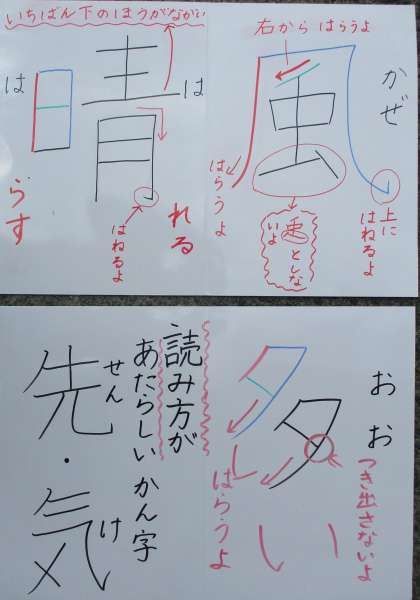 かぜ
風
右から はらうよ
はらうよ
上に
はねるよ
としな
いよ
いちばん下のほうがながい
晴
は
れる
は
らす
はねるよ
おお
多
い
つき出さないよ
はらうよ
読み方が
あたらしい かん字
先・気
せん
け